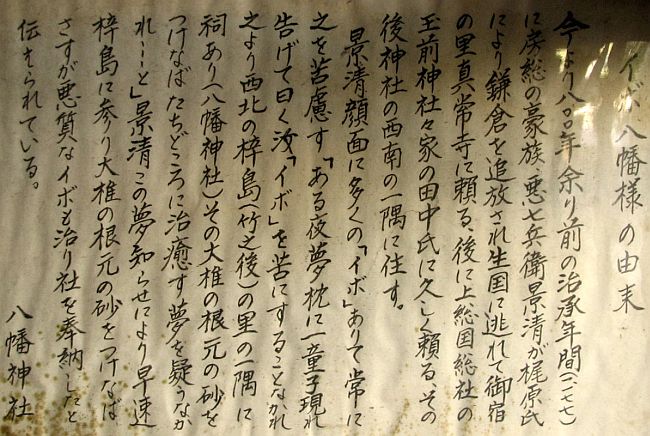 イボ八幡様の由来
今より八〇〇年余り前の治承年間(一一七七)
に房総の豪族、悪七兵衛景清が梶原氏
により鎌倉を追放され生国に逃れて御宿
の里真常寺に頼る、後に上総国総社の
玉前神社々家の田中氏に久しく頼る、その
後神社の西南の一隅に住す。
景清顔面に多くの「イボ」ありて常に
之を苦慮す「ある夜夢枕に一童子現れ
告げて曰く汝「イボ」を苦にすることなかれ
之より西北の梓島(竹之後)の里の一隅に
祠あり(八幡神社)その大椎の根元の砂を
つけなばたちどころに治癒す夢を疑うなか
れ…と」景清この夢知らせにより早速
梓島に参り大椎の根元の砂をつけなば
さすが悪質なイボも治り社を奉納したと
伝えられている。
八幡神社